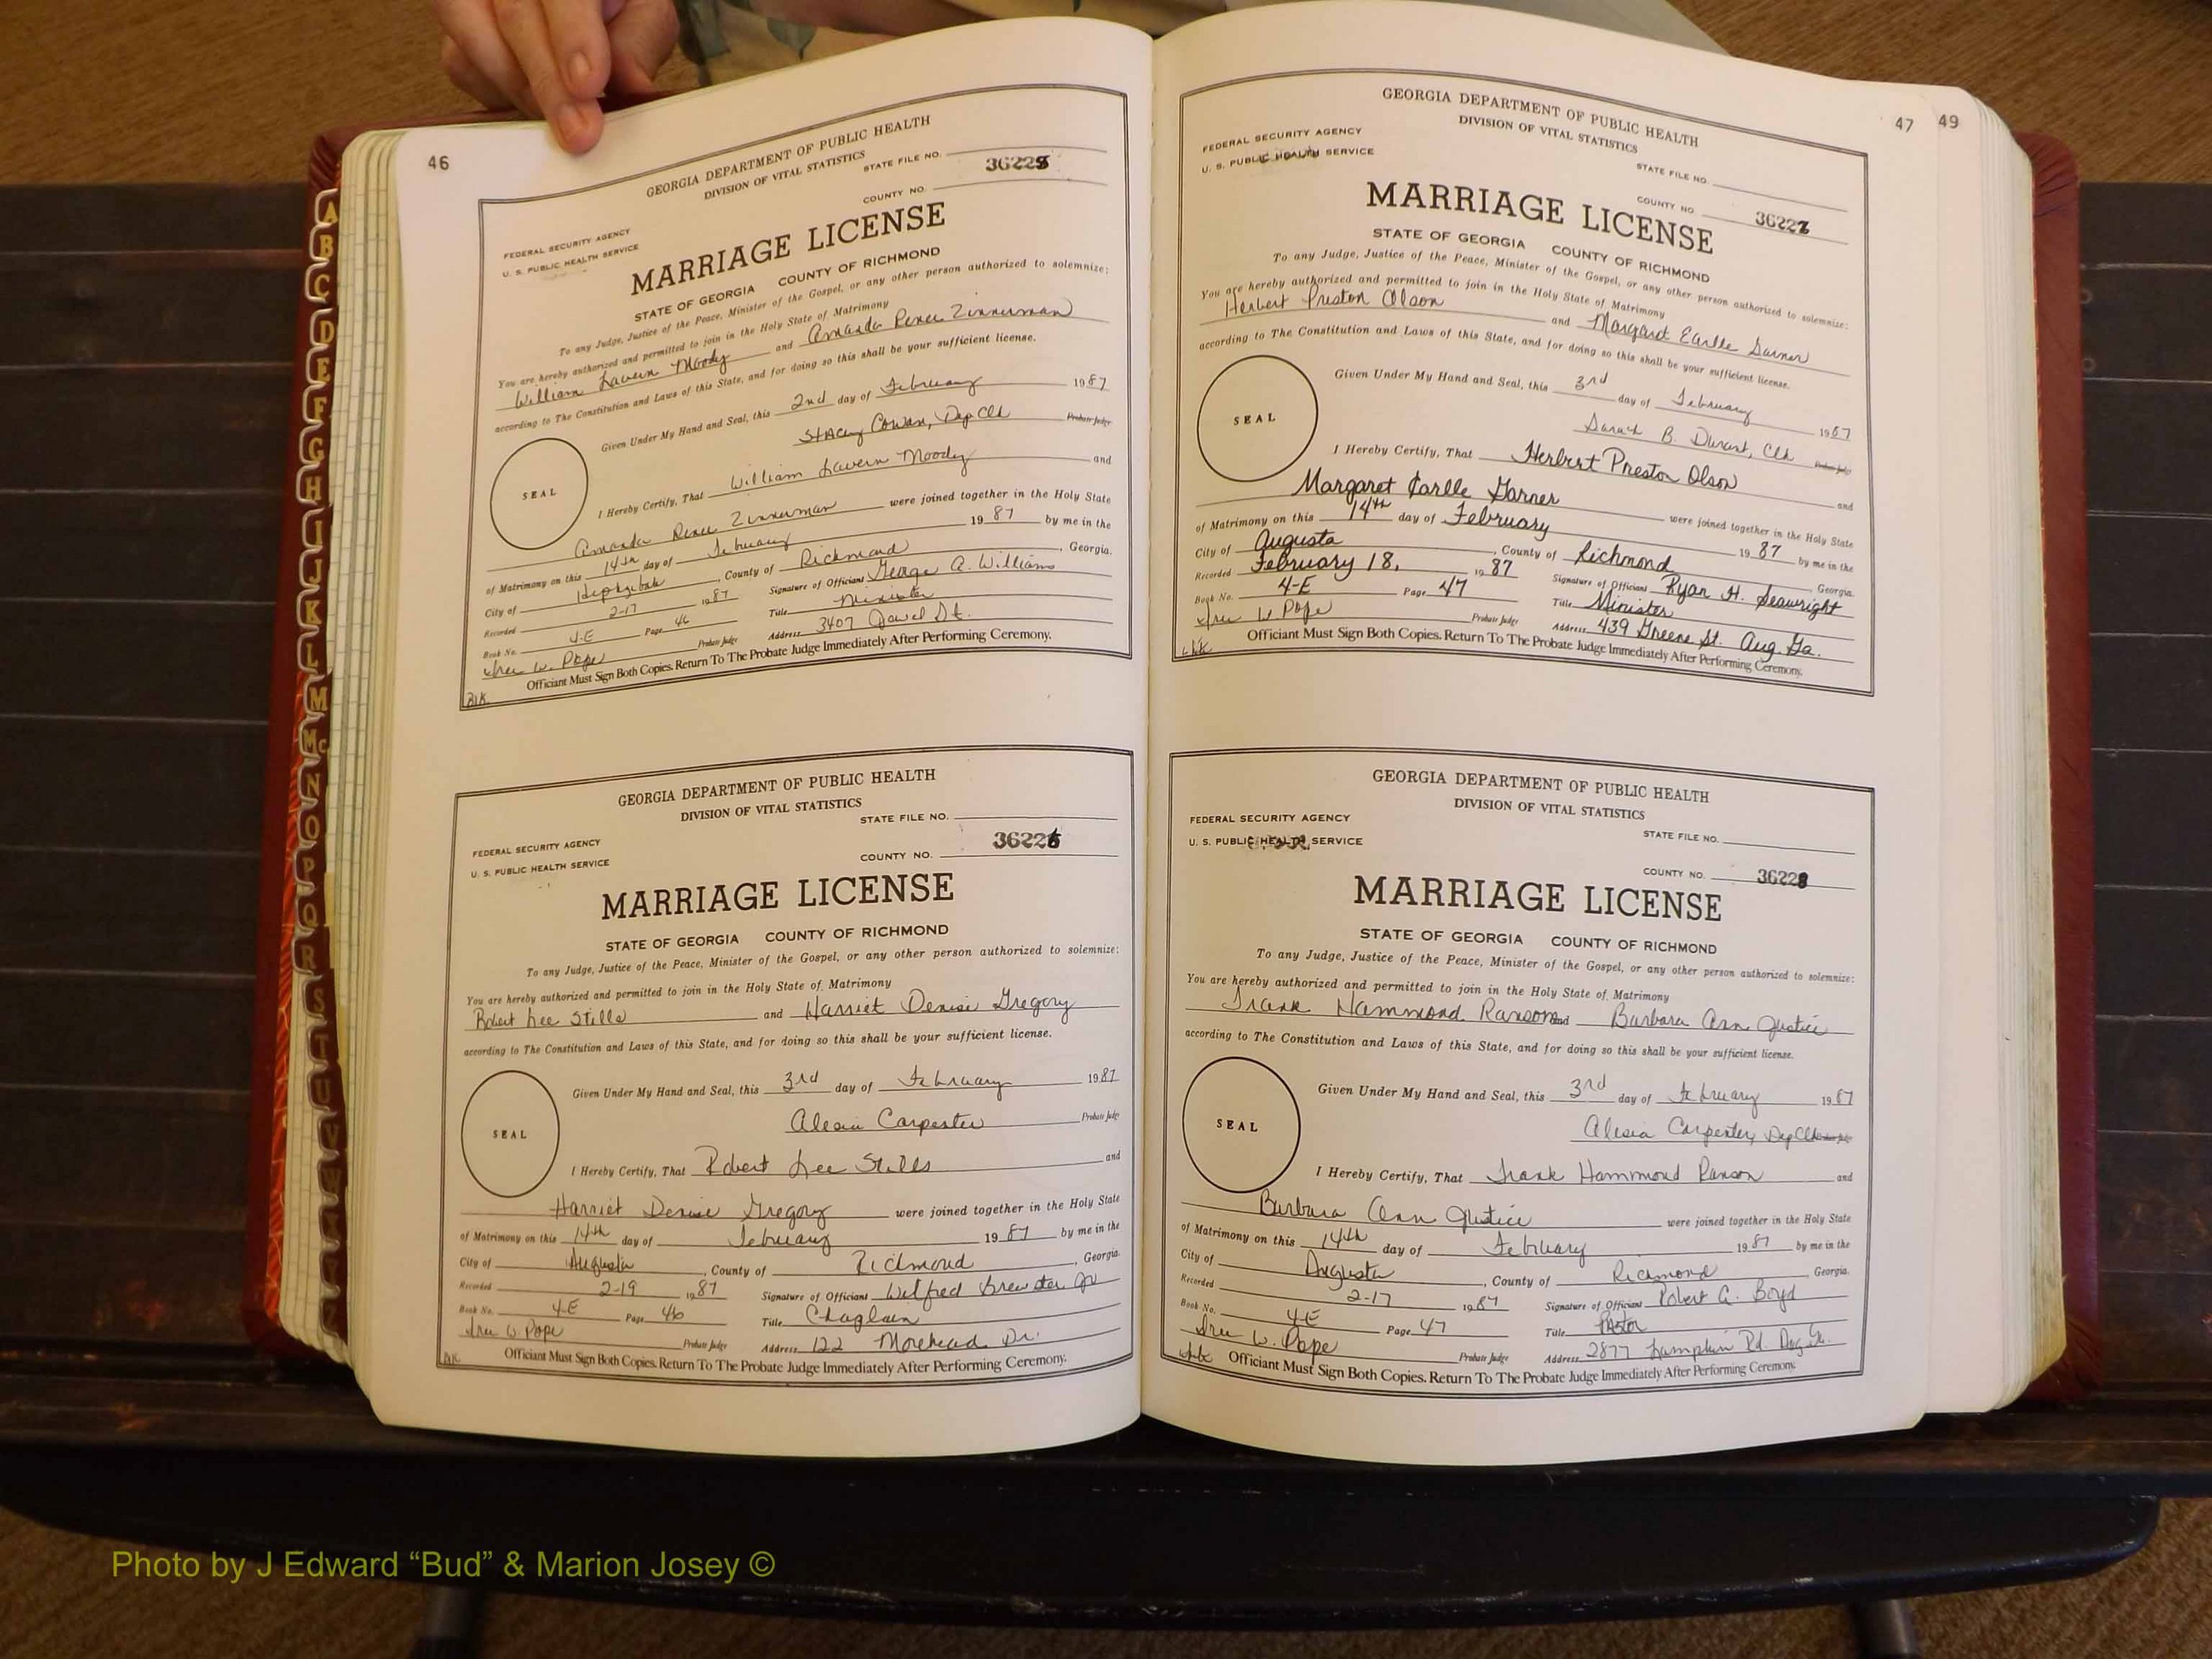 46
GEORGIA DEPARTMENT OF PUBLIC HEALTH
DIVISION OF VITAL STATISTICS
FEDERAL SECURITY AGENCY
U. S. PUBLIC HEALTH SERVICE
STATE FILE NO.
COUNTY NO.
MARRIAGE LICENSE
STATE OF GEORGIA COUNTY OF RICHMOND
To any Judge, Justice of the Peace, Minister of the Gospel, or any other person authorized to solemnize:
You are hereby authorized and permitted to join in the Holy State of Matrimony
William Lavern Moody and Amanda Renee Zinnerman
according to The Constitution and Laws of this State, and for doing so this shall be your sufficient license.
Given Under My Hand and Seal, this 2nd day of February 1987
Stacey Cowan, Dep Clk Probate Judge
SEAL
I Hereby Certify, That William Lavern Moody and
Amanda Renee Zinnerman were joined together in the Holy State
of Matrimony on this 14th day of February 1987 by me in the
City of Hephzibah, County of Richmond, Georgia.
Recorded 2-17 1987 Signature of Officiant George A. Williams
Book No. Page 46 Title Minister
Iree W. Pope Probate Judge Address 3407 St.
Officiant Must Sign Both Copies. Return To The Probate Judge Immediately After Performing Ceremony.
GEORGIA DEPARTMENT OF PUBLIC HEALTH
DIVISION OF VITAL STATISTICS
FEDERAL SECURITY AGENCY
U. S. PUBLIC HEALTH SERVICE
STATE FILE NO.
COUNTY NO. 36226
MARRIAGE LICENSE
STATE OF GEORGIA COUNTY OF RICHMOND
To any Judge, Justice of the Peace, Minister of the Gospel, or any other person authorized to solemnize:
You are hereby authorized and permitted to join in the Holy State of Matrimony
Robert Lee Stills and Harriet Denise Gregory
according to The Constitution and Laws of this State, and for doing so this shall be your sufficient license.
Given Under My Hand and Seal, this 3rd day of February 1987
Alesia Carpenter Probate Judge
SEAL
I Hereby Certify, That Robert Lee Stills and
Harriet Denise Gregory were joined together in the Holy State
of Matrimony on this 14th day of February 1987 by me in the
City of Augusta, County of Richmond, Georgia.
Recorded 2-19 1987 Signature of Officiant Wilfred Brewster Jr
Book No. 4-E Page 46 Title Chaplain
Iree W. Pope Probate Judge Address 122 Morehead Dr.
Officiant Must Sign Both Copies. Return To The Probate Judge Immediately After Performing Ceremony.
47 49
GEORGIA DEPARTMENT OF PUBLIC HEALTH
DIVISION OF VITAL STATISTICS
FEDERAL SECURITY AGENCY
U. S. PUBLIC HEALTH SERVICE
STATE FILE NO.
COUNTY NO. 36227
MARRIAGE LICENSE
STATE OF GEORGIA COUNTY OF RICHMOND
To any Judge, Justice of the Peace, Minister of the Gospel, or any other person authorized to solemnize:
You are hereby authorized and permitted to join in the Holy State of Matrimony
Herbert Preston Olson and Margaret Earlle Garner
according to The Constitution and Laws of this State, and for doing so this shall be your sufficient license.
Given Under My Hand and Seal, this 3rd day of February 1987
Sarah B. Durant, Clk Probate Judge
SEAL
I Hereby Certify, That Herbert Preston Olson and
Margaret Earlle Garner were joined together in the Holy State
of Matrimony on this 14th day of February 1987 by me in the
City of Augusta, County of Richmond Georgia.
Recorded February 18, 1987 Signature of Officiant Ryan H. Seawright
Book No. 4-E Page 47 Title Minister
Iree W. Pope Probate Judge Address 439 Greene St. Aug. Ga.
Officiant Must Sign Both Copies. Return To The Probate Judge Immediately After Performing Ceremony.
GEORGIA DEPARTMENT OF PUBLIC HEALTH
DIVISION OF VITAL STATISTICS
FEDERAL SECURITY AGENCY
U. S. PUBLIC HEALTH SERVICE
STATE FILE NO.
COUNTY NO. 36228
MARRIAGE LICENSE
STATE OF GEORGIA COUNTY OF RICHMOND
To any Judge, Justice of the Peace, Minister of the Gospel, or any other person authorized to solemnize:
You are hereby authorized and permitted to join in the Holy State of Matrimony
Frank Hammond Ranson and Barbara Ann Justice
according to The Constitution and Laws of this State, and for doing so this shall be your sufficient license.
Given Under My Hand and Seal, this 3rd day of February 1987
Alesia Carpenter, Dep Clk
SEAL
I Hereby Certify, That Frank Hammond Ranson and
Barbara Ann Justice were joined together in the Holy State
of Matrimony on this 14th day of February 1987 by me in the
City of Augusta, County of Richmond, Georgia.
Recorded 2-17 1987 Signature of Officiant Robert G. Boyd
Book No. 4E Page 47 Title Pastor
Iree W. Pope Probate Judge Address 2877 Lumpkin Rd. Aug Ga.
Officiant Must Sign Both Copies. Return To The Probate Judge Immediately After Performing Ceremony.
A
B
C
D
E
F
G
H
I
J
K
L
M
Mc
N
O
P
Q
R
S
T
U
V
Photo by J Edward “Bud” & Marion Josey ©